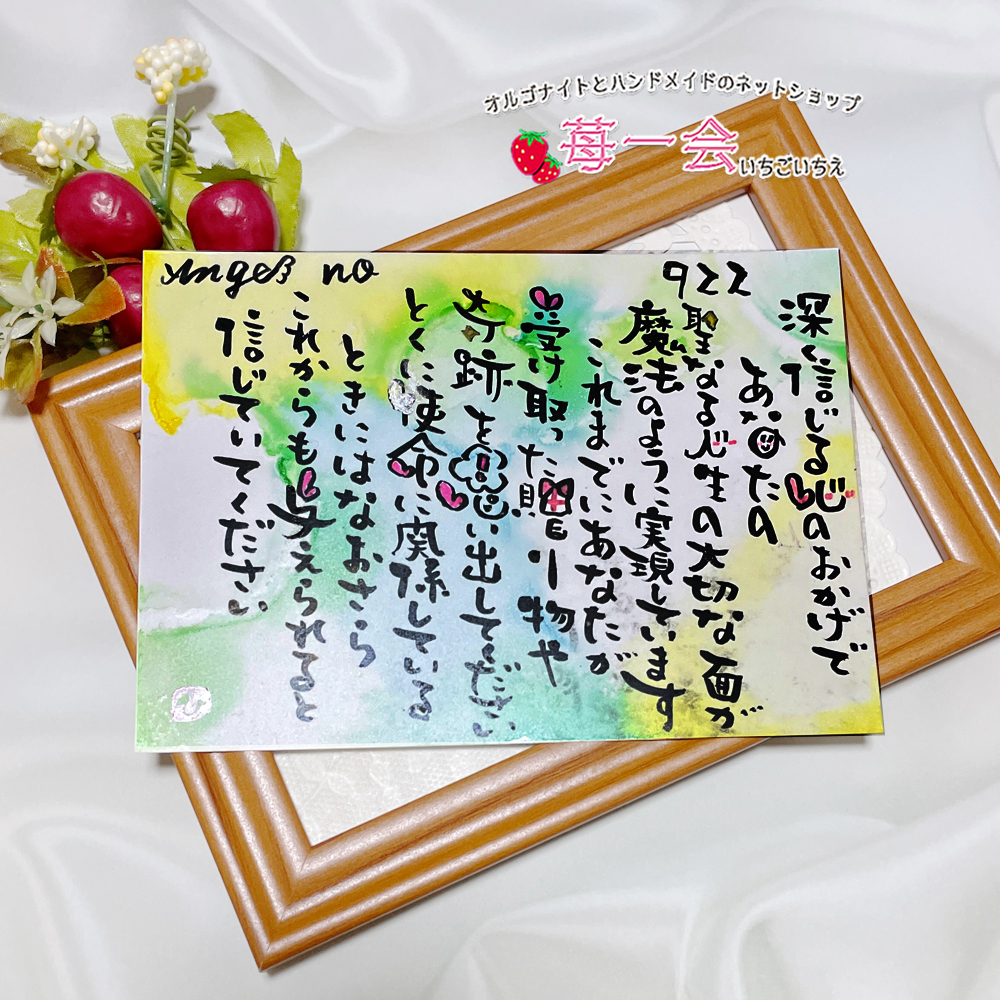 オルゴナイトとハンドメイドのネットショップ
苺一会
いちごいちえ
Angel no 922
深く信じる心のおかげで
あなたの
聖なる人生の大切な面が
魔法のように実現しています
これまでにあなたが
受け取った贈り物や
奇跡を思い出してください
とくに使命に関係している
ときにはなおさら
これからも与えられると
信じていてください